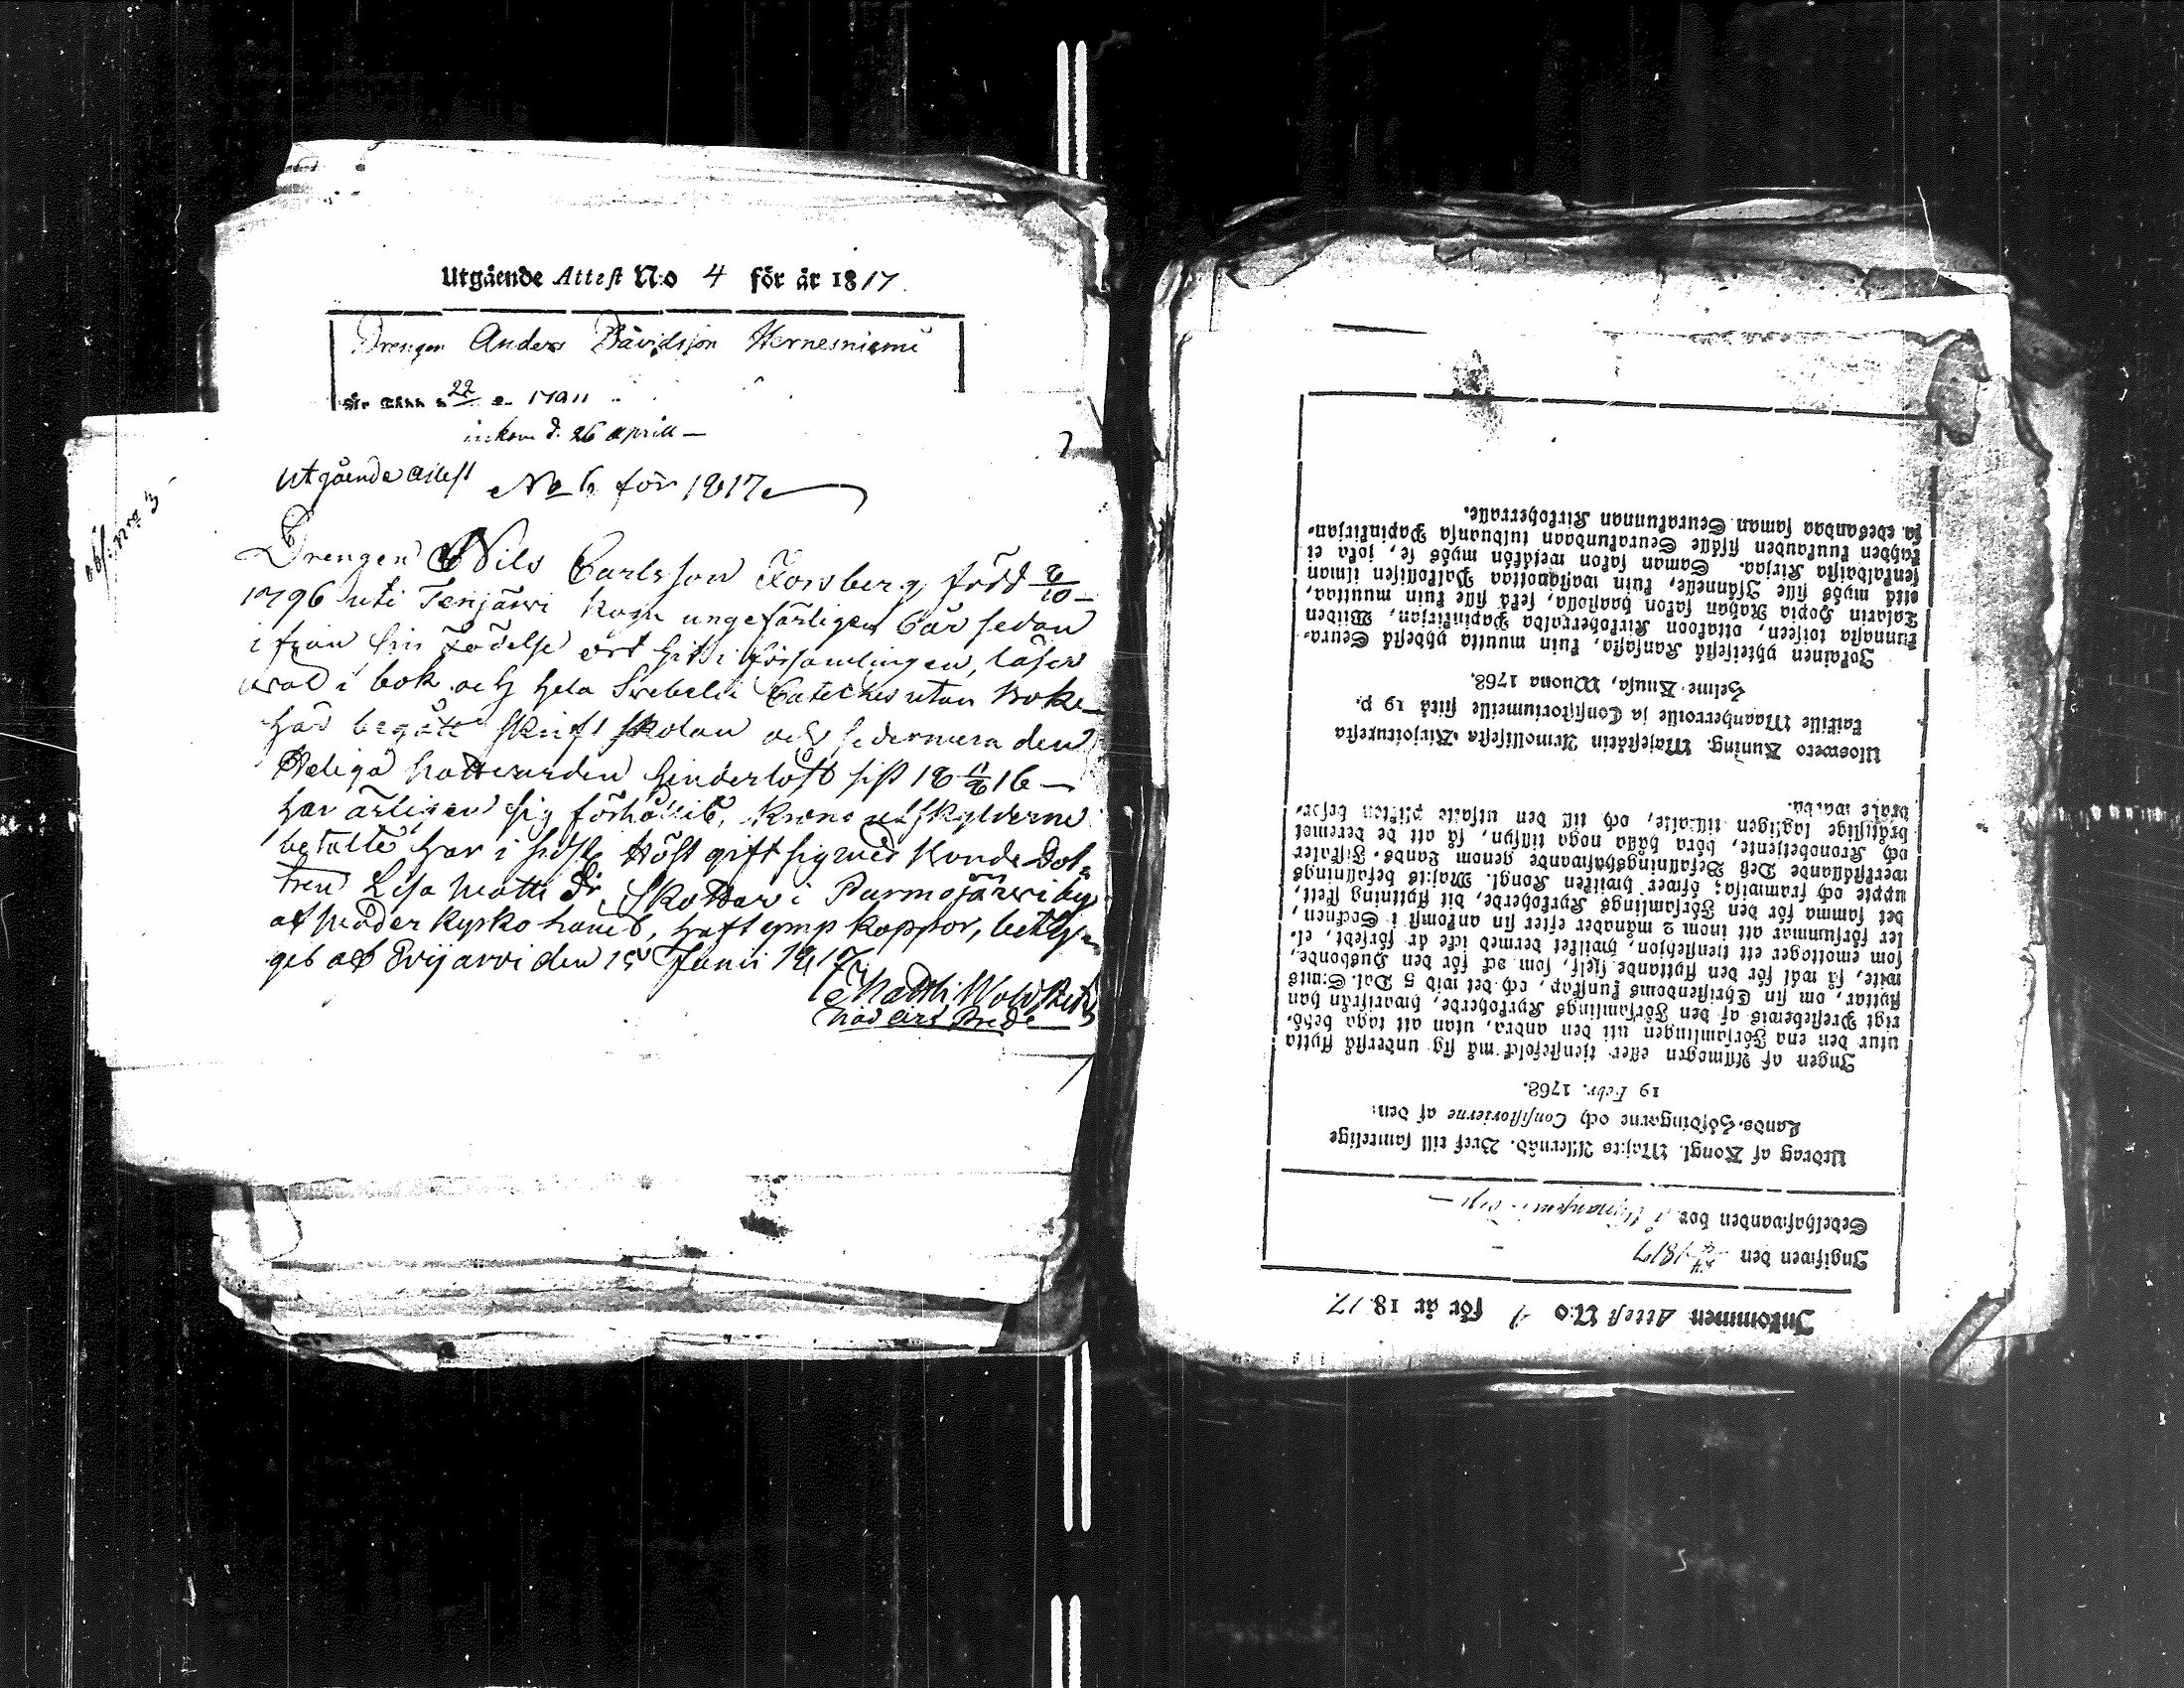 Utgående Attest N:o 4 för år 1817.
Drengen Anders Davidsson Hernesniemi
inkom d. 26 aprill
utgående attest No 6 för 1817
obs: Nro 3
Drengen Nils Carlsson Forsberg född 6/10
1796 uti Terijärvi Kapn ungefärligen 6 år sedan
ifrån sin Födelse ort hit i församlingen, läser
wäl i bok och hela Svebelii Cateches utan Boke
har begått skrift skolan och sedermera den
Heliga nattvarden hinderlöst sist 18 11/6 16
har ärligen sig förhållit, Krono utskylderne
betalte har i sidste Höst gift sig med Bonde Dot
tren Lisa Matts Dr Skottar i Purmojärvi by
af Neder Kypko haned, haft ymp koppor, betyg
ges af Evijärvi den 15 Junii 1817
Matth: Woivalin
Inkommen Attest N:o 1 för år 1817.
Ingifwen den 1817
Sedelhafwanden bor i
Utdrag af Kongl. Maj:ts Allernåd. Bref till samtelige
Lands-Höfdingarne och Consistorierne af den
19 Febr. 1768.
Ingen af Allmogen eller tjenstefolck må sig understå flytta
utur den ena Församlingen uti den andra, utan att taga behö-
rigt Prestebewis af den Församlings Kyrkoherde, hwarifrån han
flyttar, om sin Christendoms kunskap, och det wid 5 Dal. S:mts
wite, så wäl för den flyttande sjelf, som ock för den Husbonde,
som emottoger ett tienstehjon, hwilket dermed icke är försedt, el-
ler försummar att inom 2 månader efter sin ankomst i Socknen,
det samma för den Församlings Kyrkoherde, dit flyttning skett,
uppte och framwisa; öfwer hwilken Kongl. Maj:ts befallnings
werkställande Deß Befallningshafwande genom Lands-Fiscaler
och Kronobetjente, böra hålla noga tillsyn, så att de deremot
bråttslige lagligen tilltalte, och till den utsatte plikten befor-
drade warda.
Uloswero Kuning. Majestetin Armollisesta Kirjoituxesta
kaikille Maanherroille ja Consistoriumeille siitä 19 p.
Helme-Kuusa, Wuona 1768.
Jokainen yhteisestä Kansasta, kuin muutta yhdestä Seura-
kunnasta toiseen, ottakoon Kirkoherralda Papinkirjan, Wiiden
Talarin Hopia Rahan sakon haastolla, sekä sille kuin muuttaa,
että myös sille Isännelle, kuin wastanottaa Palkollisen ilman
senkaldaista Kirjaa. Saman sakon wetäkön myös se, joka ei
kahden kuukauden sisälle Seurakundaan tulduansa Papinkirjan-
sa edesandaa saman Seurakunnan Kirkoherralle.